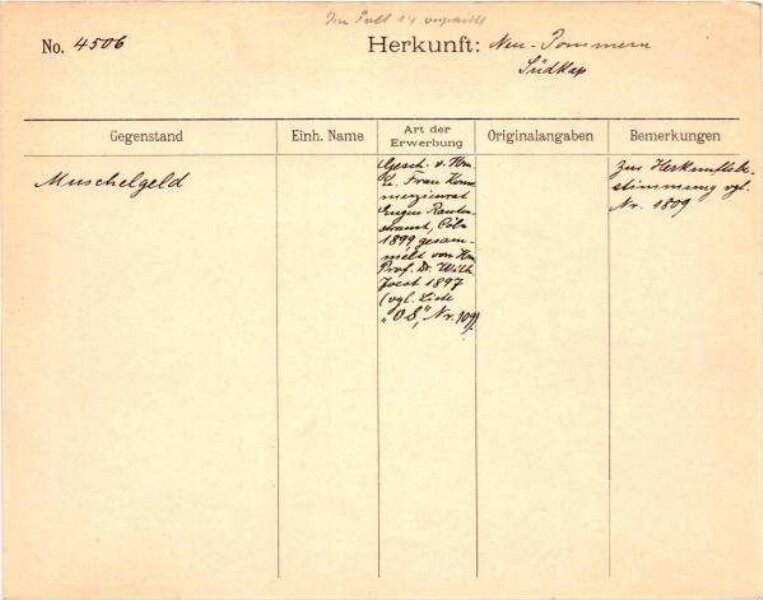 Im Pult 14 verpackt
No. 4506
Herkunft: Neu-Pommern
Südkap
Gegenstand
Einh. Name
Art der Erwerbung
Originalangaben
Bemerkungen
Muschelgeld
Gesch. v. Hn
u. Frau Kom
merzienrat
Eugen Rauten-
strauch, Cöln
1899 gesam-
melt von Hn
Prof. Dr. Wilh
Joest 1897
(vgl. Liste
„OS," Nr. 109)
Zur Herkunftsbe-
stimmung vgl.
Nr. 1809